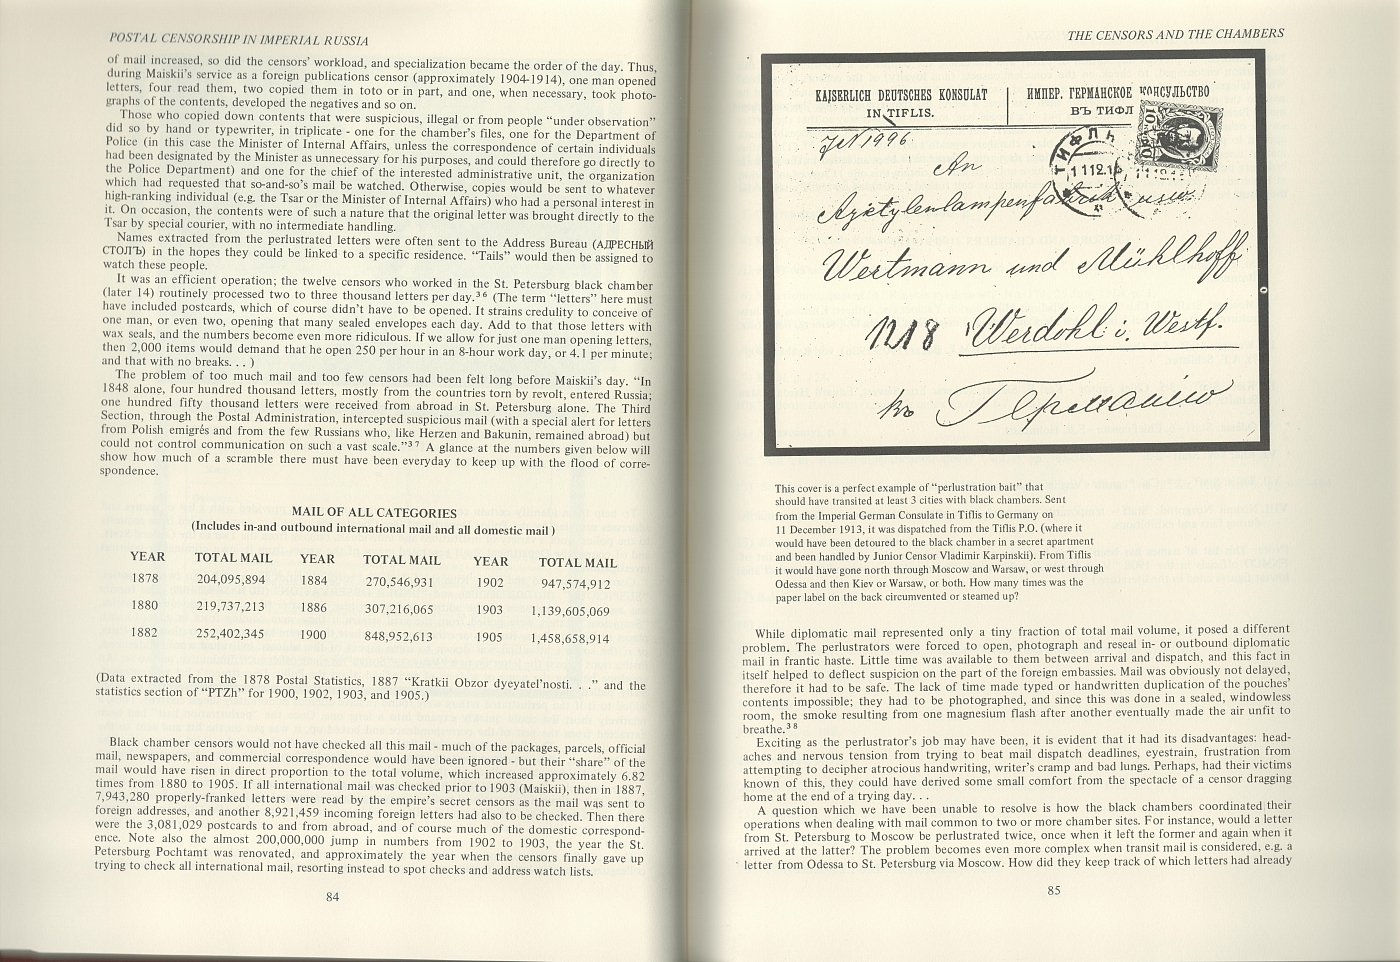 POSTAL CENSORSHIP IN IMPERIAL RUSSIA
of mail increased, so did the censors' workload, and specialization became the order of the day. Thus,
during Maiskii's service as a foreign publications censor (approximately 1904-1914), one man opened
letters, four read them, two copied them in toto or in part, and one, when necessary, took photo-
graphs of the contents, developed the negatives and so on.
Those who copied down contents that were suspicious, illegal or from people “under observation”
did so by hand or typewriter, in triplicate - one for the chamber's files, one for the Department of
Police (in this case the Minister of Internal Affairs, unless the correspondence of certain individuals
had been designated by the Minister as unnecessary for his purposes, and could therefore go directly to
the Police Department) and one for the chief of the interested administrative unit, the organization
which had requested that so-and-so's mail be watched. Otherwise, copies would be sent to whatever
high-ranking individual (e.g. the Tsar or the Minister of Internal Affairs) who had a personal interest in
it. On occasion, the contents were of such a nature that the original letter was brought directly to the
Tsar by special courier, with no intermediate handling.
Names extracted from the perlustrated letters were often sent to the Address Bureau (АДРЕСНЫЙ
СТОЛЪ) in the hopes they could be linked to a specific residence. “Tails” would then be assigned to
watch these people.
It was an efficient operation; the twelve censors who worked in the St. Petersburg black chamber
(later 14) routinely processed two to three thousand letters per day.36 (The term “letters” here must
have included postcards, which of course didn't have to be opened. It strains credulity to conceive of
one man, or even two, opening that many sealed envelopes each day. Add to that those letters with
wax seals, and the numbers become even more ridiculous. If we allow for just one man opening letters,
then 2,000 items would demand that he open 250 per hour in an 8-hour work day, or 4.1 per minute;
and that with no breaks. . . )
The problem of too much mail and too few censors had been felt long before Maiskii's day. “In
1848 alone, four hundred thousand letters, mostly from the countries torn by revolt, entered Russia;
one hundred fifty thousand letters were received from abroad in St. Petersburg alone. The Third
Section, through the Postal Administration, intercepted suspicious mail (with a special alert for letters
from Polish emigrés and from the few Russians who, like Herzen and Bakunin, remained abroad) but
could not control communication on such a vast scale.”37 A glance at the numbers given below will
show how much of a scramble there must have been everyday to keep up with the flood of corre-
spondence.
MAIL OF ALL CATEGORIES
(Includes in-and outbound international mail and all domestic mail )
YEAR TOTAL MAIL YEAR TOTAL MAIL YEAR TOTAL MAIL
1878 204,095,894 1884 270,546,931 1902 947,574,912
1880 219,737,213 1886 307,216,065 1903 1,139,605,069
1882 252,402,345 1900 848,952,613 1905 1,458,658,914
(Data extracted from the 1878 Postal Statistics, 1887 “Kratkii Obzor dyeyatel'nosti. . .” and the
statistics section of “PTZh” for 1900, 1902, 1903, and 1905.)
Black chamber censors would not have checked all this mail - much of the packages, parcels, official
mail, newspapers, and commercial correspondence would have been ignored - but their “share” of the
mail would have risen in direct proportion to the total volume, which increased approximately 6.82
times from 1880 to 1905. If all international mail was checked prior to 1903 (Maiskii), then in 1887,
7,943,280 properly-franked letters were read by the empire's secret censors as the mail was sent to
foreign addresses, and another 8,921,459 incoming foreign letters had also to be checked. Then there
were the 3,081,029 postcards to and from abroad, and of course much of the domestic correspond-
ence. Note also the almost 200,000,000 jump in numbers from 1902 to 1903, the year the St.
Petersburg Pochtamt was renovated, and approximately the year when the censors finally gave up
trying to check all international mail, resorting instead to spot checks and address watch lists.
84
THE CENSORS AND THE CHAMBERS
KAISERLICH DEUTSCHES KONSULAT
IN TIFLIS.
ИМПЕР. ГЕРМАНСКОЕ КОНСУЛЬСТВО
ВЪ ТИФЛ
JN 1996
ТИФЛ
An
Azetylenlampenfabrik usw.
Wertmann und Mühlhoff
1218 Werdohl i. Westf.
въ Германію
This cover is a perfect example of “perlustration bait” that
should have transited at least 3 cities with black chambers. Sent
from the Imperial German Consulate in Tiflis to Germany on
11 December 1913, it was dispatched from the Tiflis P.O. (where it
would have been detoured to the black chamber in a secret apartment
and been handled by Junior Censor Vladimir Karpinskii). From Tiflis
it would have gone north through Moscow and Warsaw, or west through
Odessa and then Kiev or Warsaw, or both. How many times was the
paper label on the back circumvented or steamed up?
While diplomatic mail represented only a tiny fraction of total mail volume, it posed a different
problem. The perlustrators were forced to open, photograph and reseal in- or outbound diplomatic
mail in frantic haste. Little time was available to them between arrival and dispatch, and this fact in
itself helped to deflect suspicion on the part of the foreign embassies. Mail was obviously not delayed,
therefore it had to be safe. The lack of time made typed or handwritten duplication of the pouches'
contents impossible; they had to be photographed, and since this was done in a sealed, windowless
room, the smoke resulting from one magnesium flash after another eventually made the air unfit to
breathe.38
Exciting as the perlustrator's job may have been, it is evident that it had its disadvantages: head-
aches and nervous tension from trying to beat mail dispatch deadlines, eyestrain, frustration from
attempting to decipher atrocious handwriting, writer's cramp and bad lungs. Perhaps, had their victims
known of this, they could have derived some small comfort from the spectacle of a censor dragging
home at the end of a trying day. . .
A question which we have been unable to resolve is how the black chambers coordinated their
operations when dealing with mail common to two or more chamber sites. For instance, would a letter
from St. Petersburg to Moscow be perlustrated twice, once when it left the former and again when it
arrived at the latter? The problem becomes even more complex when transit mail is considered, e.g. a
letter from Odessa to St. Petersburg via Moscow. How did they keep track of which letters had already
85